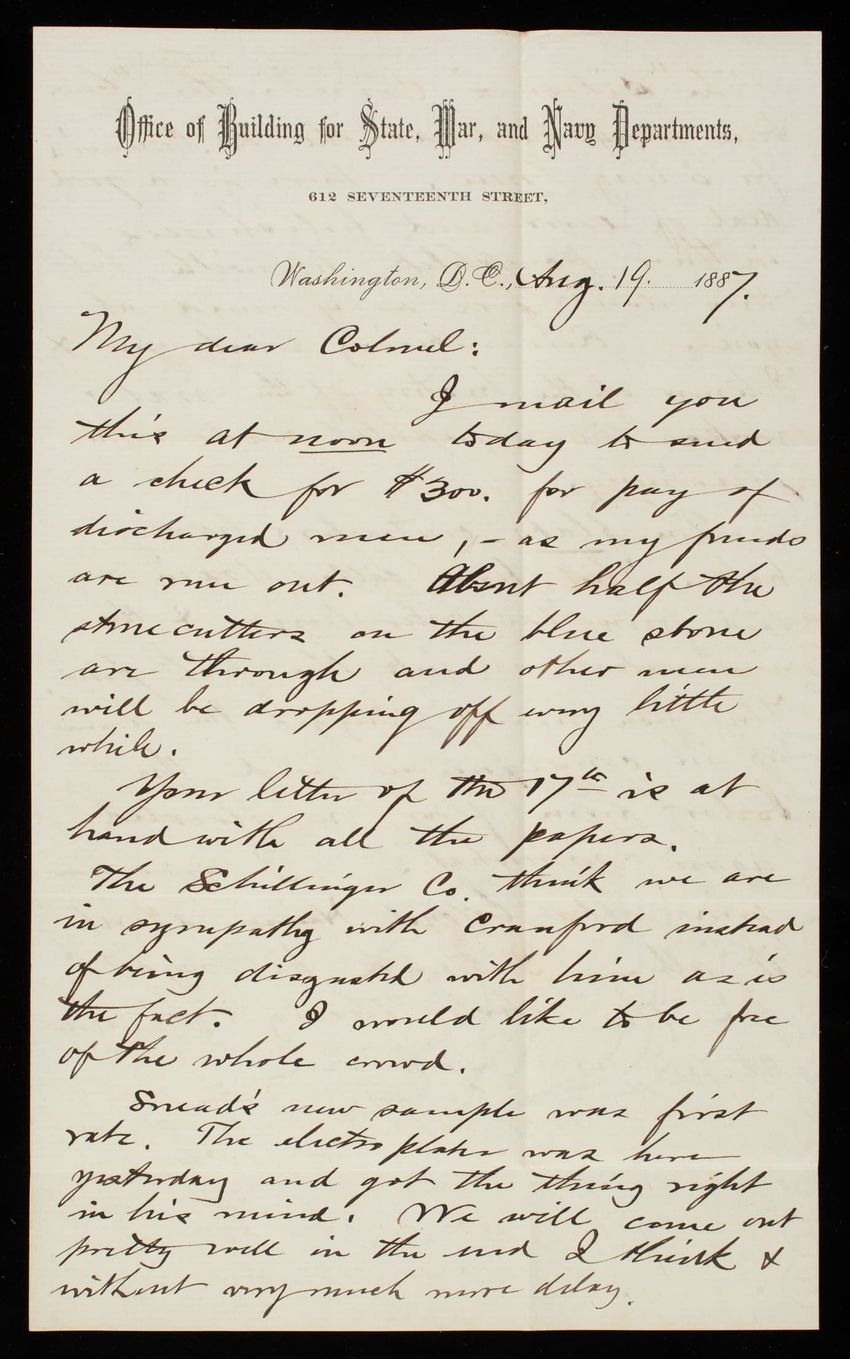 Office of Building for State, War, and Navy Departments,
612 SEVENTEENTH STREET,
Washington, D.C., Aug. 19. 1887.
My dear Colonel:
I mail you
this at noon today to send
a check for $300. for pay of
discharged men, – as my funds
are run out. About half the
stonecutters on the blue stone
are through and other men
will be dropping off every little
while.
Your letter of the 17th is at
hand with all the papers.
The Schillinger Co. think we are
in sympathy with Cranford instead
of being disgusted with him as is
the fact. I would like to be free
of the whole crowd.
Snead's new sample was first
rate. The electro plater was here
yesterday and got the thing right
in his mind. We will come out
pretty well in the end I think &
without very much more delay.